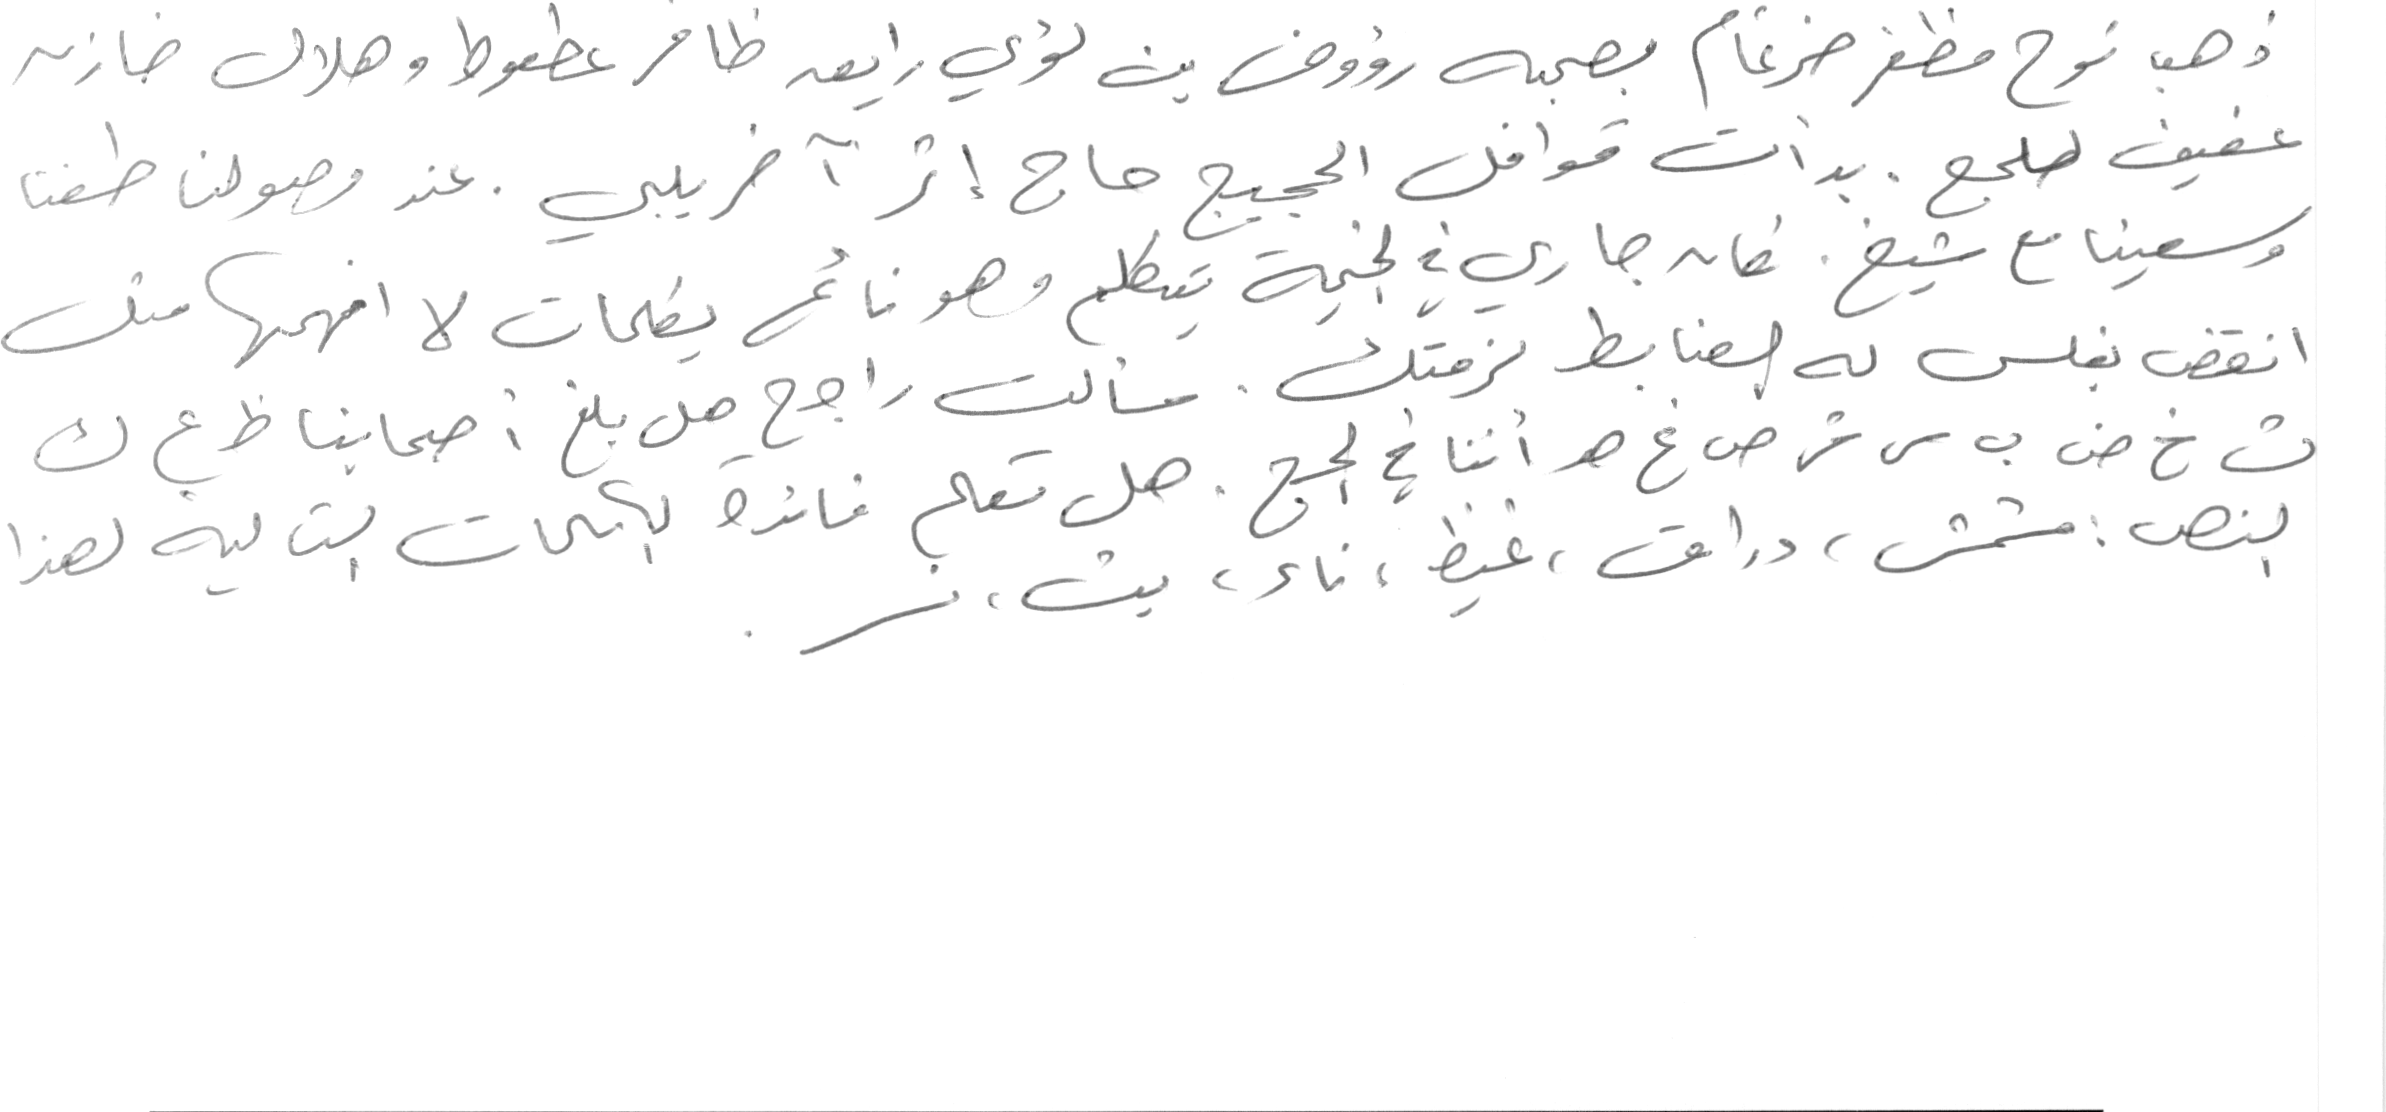 ذهب نوح مظفر ضرغام بصحبه رؤوف بن لؤي رايعه ظافر عطعوط و هلال ضازن
عفيف صلحع . بدأت قوافل الحجيج حاج إثر آخر يلبي . عند وصولنا طفنا
وسعينا مع شيخ . كان جاري في الخيمة يتكلم وهو نائم بكلمات لا افهمها مثل
انقض بغلس له الضابط لزمتك . سألت راجح هل بلغ أصحابنا ظ ع ك
ث خ ض ب س ش ص غ هـ أننا في الحج . هل تعلم فائدة الكلمات التالية لهذا
النص : مشمش ، دراق ، غيظ ، ناى ، بث ، نر .